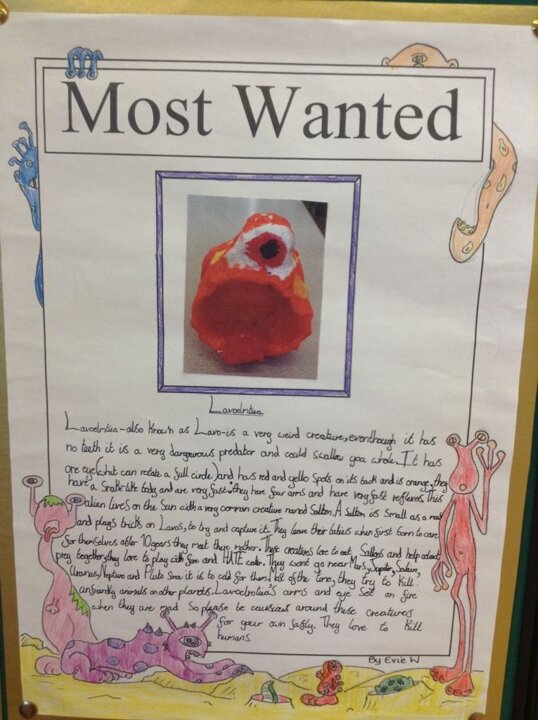 Most Wanted
Lavoelntiea
Lavoelntiea-also known as Lavo-is a very weird creature, eventhough it has
no teeth it is a very dangerous predator and could swallow you whole. It has
one eye (what can rotate a full circle) and has red and yello spots on its back and is orange, they
have a snake like body and are very fast. they have four arms and have very fast reflexes. This
alien lives on the Sun with a very common creature named Sallton. A Sallton is small as a rat
and plays tricks on Lavos, to try and capture it. They leave their babies when first born to care
for themselves after 10 years they meet there mother. These creatures love to eat Salltons and help
pray together, they love to play with fire and HATE water. They wont go near Mars, Jupiter, Saturn,
Uranus, Neptune and Pluto Since it is to cold for them. Most of the time, they try to kill
unfriendly animals on other planets. Lavoelntiea's arms and eye Set on fire
when they are mad So please be caussious around these creatures
for your own safty. They love to kill
humans.
By Evie W